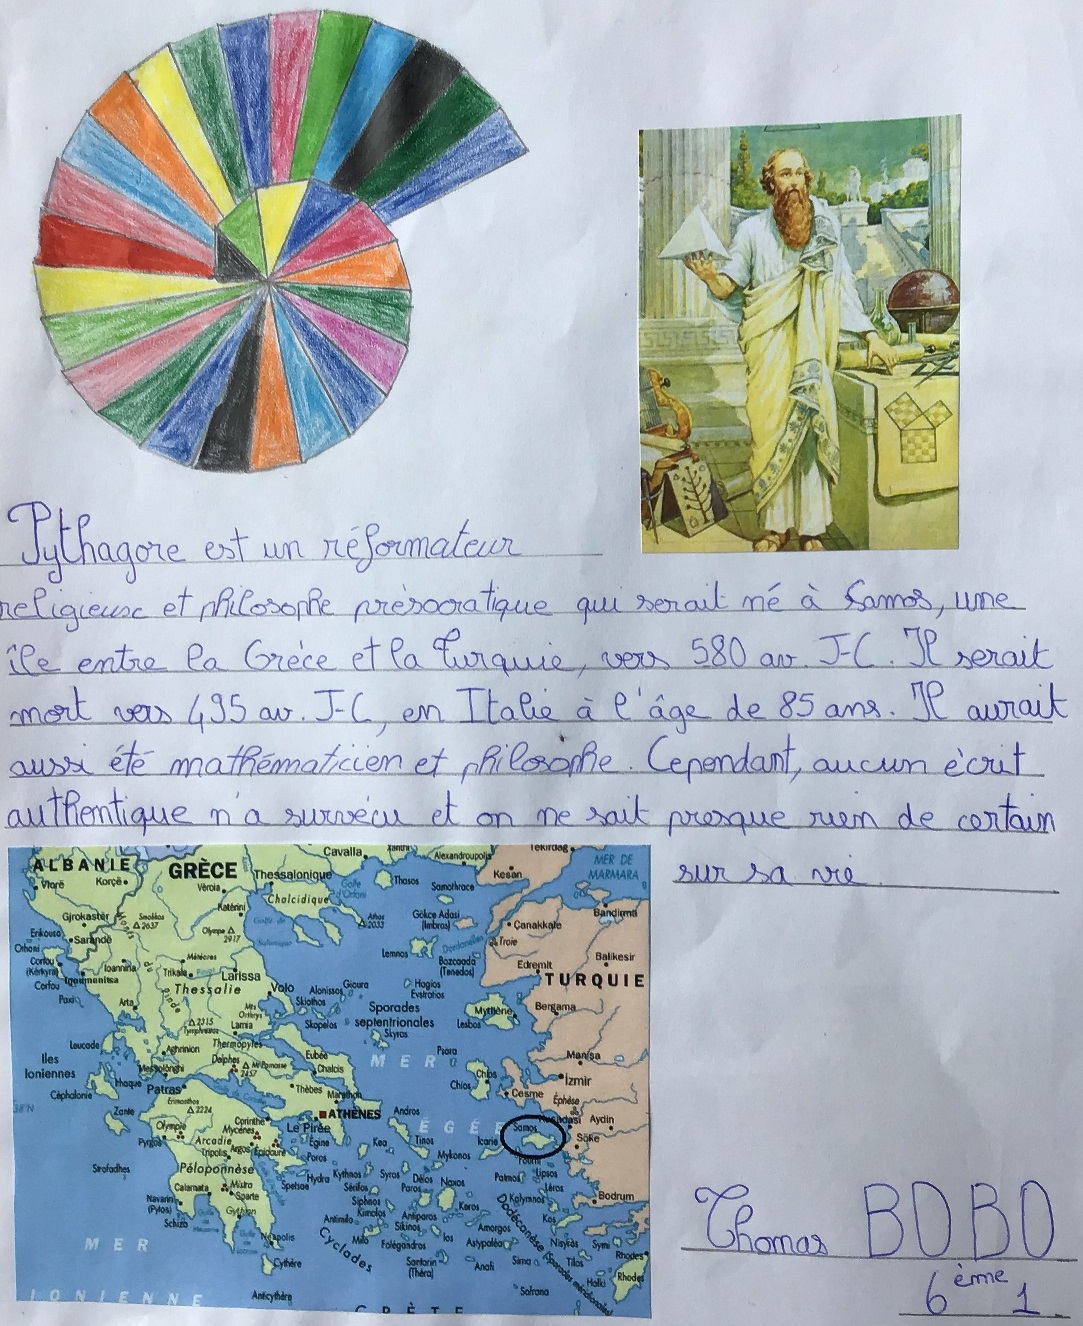 Pythagore est un réformateur
religieux et philosophe présocratique qui serait né à Samos, une
île entre la Grèce et la Turquie, vers 580 av. J-C. Il serait
mort vers 495 av. J-C, en Italie à l'âge de 85 ans. Il aurait
aussi été mathématicien et philosophe. Cependant, aucun écrit
authentique n'a survécu et on ne sait presque rien de certain
sur sa vie.
ALBANIE
GRÈCE
Cavalla
Alexandroupolis
Tekirdag
MER DE
MARMARA
Vlorë
Korçë
Véroia
Thessalonique
Thasos
Samothrace
Kesan
Chalcidique
Katérini
Gjirokastër
Smolikas
2637
Olympe
2917
Athos
2033
Gökce Adasi
(Imbros)
Canakkale
Bandirma
Erikousa
Sarandë
Othoni
Corfou
(Kérkyra)
Corfou
Ioannina
Météores
Trikala
Larissa
Lemnos
Bozcaada
(Tenedos)
Dardanelles
Troie
Edremit
Balikesir
TURQUIE
Igoumenitsa
Paxi
Arta
Thessalie
Volo
Alonissos
Gioura
Skiathos
Skopelos
Hagios
Evstratios
Sporades
septentrionales
Skyros
Mytilène
Lesbos
Bergama
2315
Lamia
Thermopyles
Leucade
Aghrinion
Delphes
2457
Eubée
Chalcis
MER
Psara
Manisa
Iles
Ioniennes
Ithaque
Messolonghi
Patras
Thèbes
Marathon
Chios
Chios
Cesme
Izmir
Céphalonie
38°N
Zante
2224
Olympie
Pyrgos
Corinthe
Mycènes
Arcadie
Tripolis
Argos
Epidaure
ATHÈNES
Le Pirée
Egine
Poros
Andros
Kea
Tinos
Mykonos
ÉGÉE
Icarie
Samos
Kusadasi
Ephèse
Aydin
Söke
Fourni
Strofades
Péloponnèse
Calamata
Mistra
Sparte
Hydra
Spetsai
Kythnos
Sérifos
Syros
Délos
Paros
Naxos
Patmos
Lipsos
Léros
Bodrum
Navarin
(Pylos)
Schiza
Gythion
Siphnos
Kimolos
Antimilo
Milo
Antiparos
Sikinos
Folégandros
Ios
Keros
Amorgos
Astypaléa
Kalymnos
Kos
Dodécanèse
(Sporades méridionales)
Nisyros
Symi
Rhodes
MER
Neapolis
Cythère
Cyclades
Santorin
(Théra)
Anafi
Sirna
Tilos
Halki
Rhodes
IONIENNE
Anticythère
CRÈTE
Safrana
Thomas BOBO
6ème 1